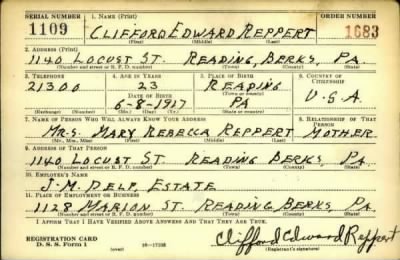 SERIAL NUMBER 1. NAME (Print) ORDER NUMBER
1109 CLIFFORD EDWARD REPPERT 1683
(First) (Middle) (Last)
2. ADDRESS (Print)
1140 LOCUST ST. READING, BERKS, PA.
(Number and street or R. F. D. number) (Town) (County) (State)
3. TELEPHONE 4. AGE IN YEARS 5. PLACE OF BIRTH 6. COUNTRY OF CITIZENSHIP
21300 23 READING
DATE OF BIRTH
6-8-1917 PA U.S.A.
(Exchange) (Number) (Mo.) (Day) (Yr.) (State or country)
7. NAME OF PERSON WHO WILL ALWAYS KNOW YOUR ADDRESS 8. RELATIONSHIP OF THAT PERSON
MRS. MARY REBECCA REPPERT MOTHER
(Mr., Mrs., Miss) (First) (Middle) (Last)
9. ADDRESS OF THAT PERSON
1140 LOCUST ST. READING BERKS, PA.
(Number and street or R. F. D. number) (Town) (County) (State)
10. EMPLOYER'S NAME
J. M. DELP, ESTATE
11. PLACE OF EMPLOYMENT OR BUSINESS
1128 MARION ST. READING BERKS, PA
(Number and street or R. F. D. number) (Town) (County) (State)
I AFFIRM THAT I HAVE VERIFIED ABOVE ANSWERS AND THAT THEY ARE TRUE.
REGISTRATION CARD
D. S. S. Form 1 (over) Clifford Edward Reppert
(Registrant's signature)